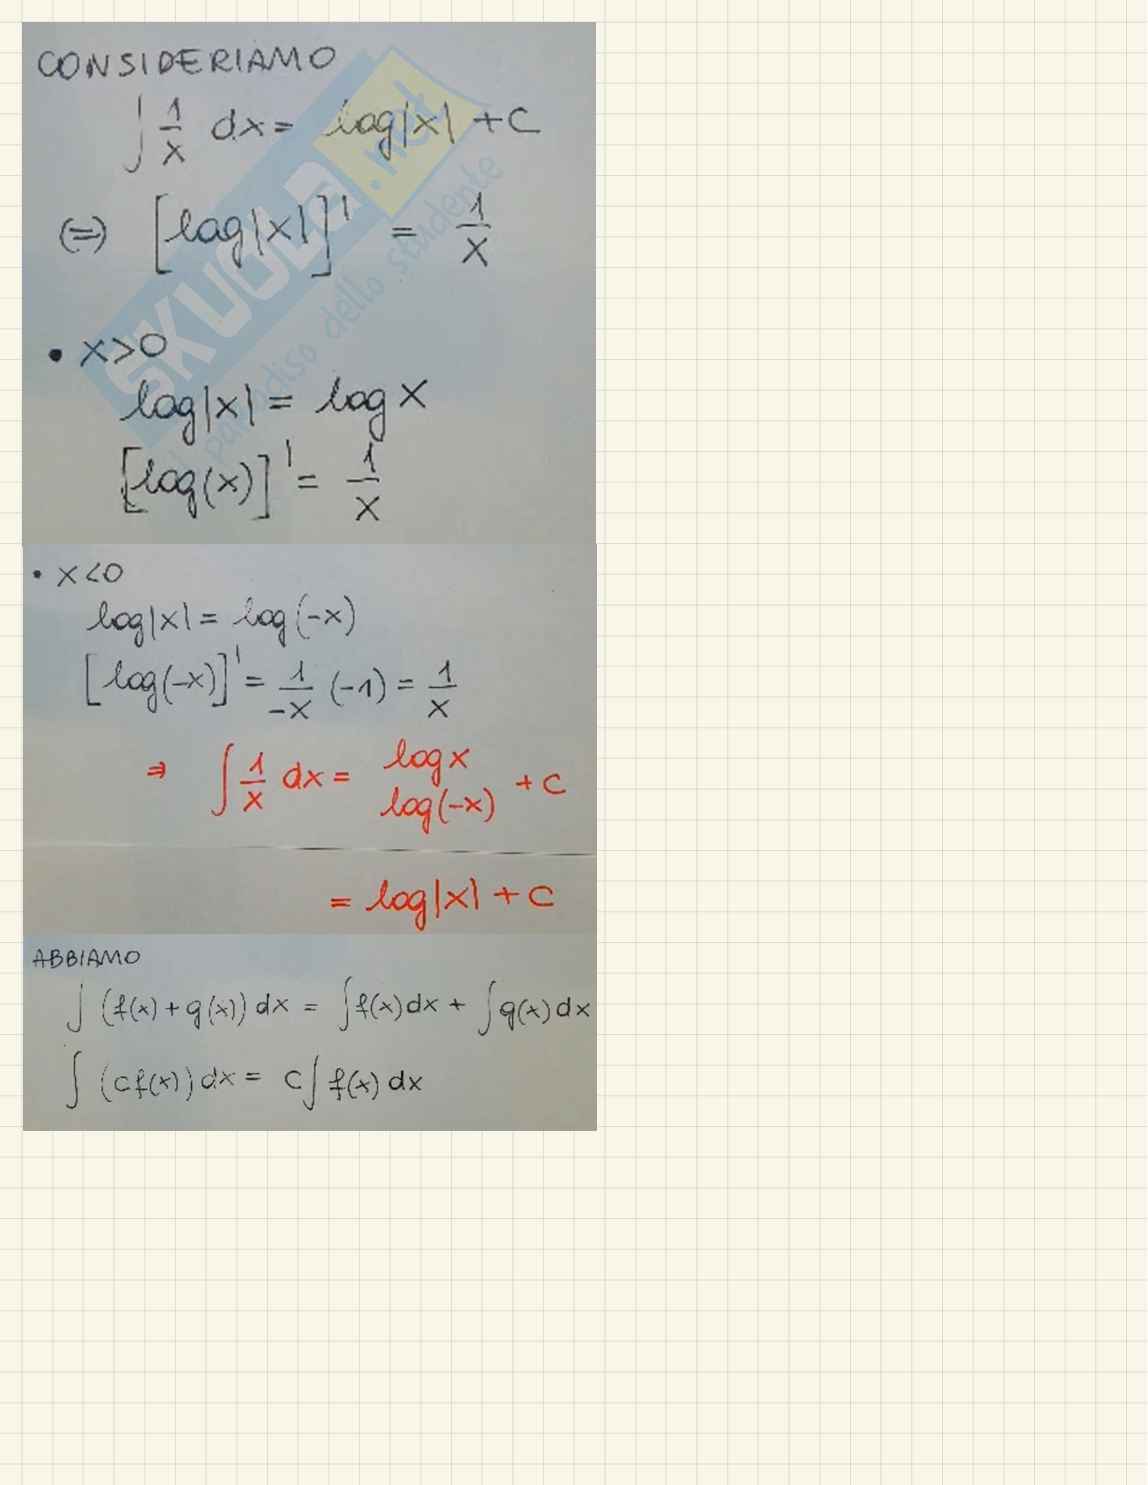 CONSIDERIAMO
∫ 1/x dx = log|x| + c
(=) [log|x|]' = 1/x
• x>0
log|x| = log x
[log(x)]' = 1/x
• x<0
log|x| = log(-x)
[log(-x)]' = 1/-x (-1) = 1/x
⇒ ∫ 1/x dx = log x
log(-x) + c
= log|x| + c
ABBIAMO
∫ (f(x) + g(x)) dx = ∫ f(x) dx + ∫ g(x) dx
∫ (c f(x)) dx = c ∫ f(x) dx
SKUOLA.net
paradiso dello studente